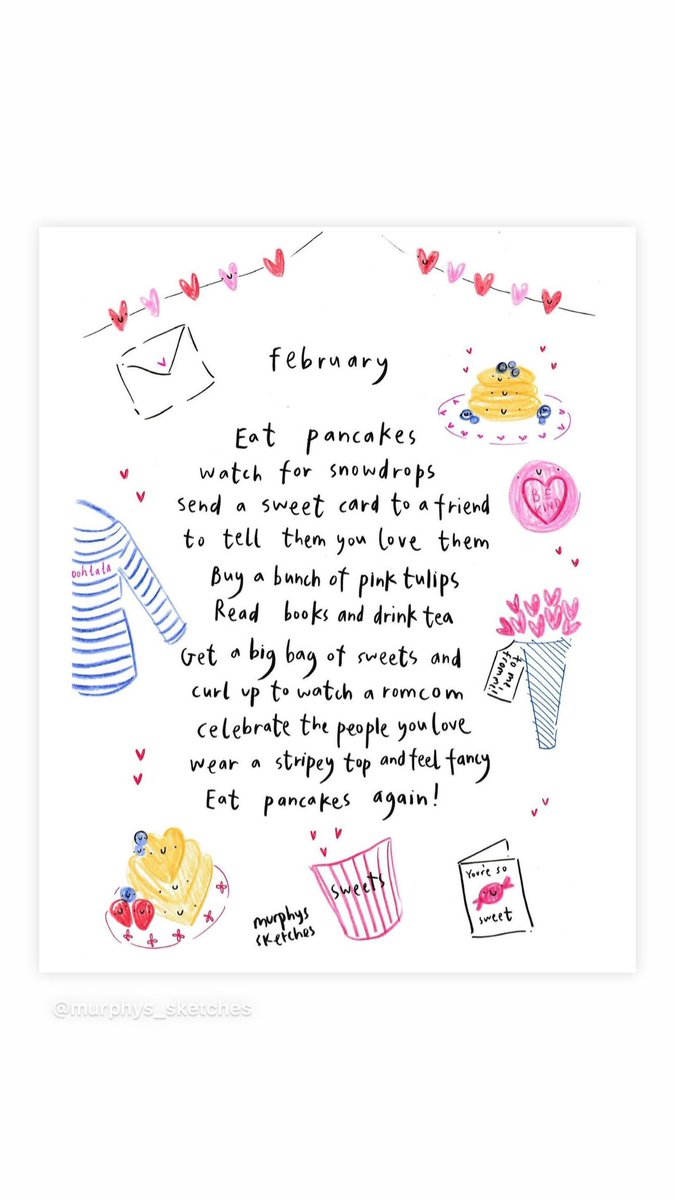 february
Eat pancakes
watch for snowdrops
send a sweet card to a friend
to tell them you love them
Buy a bunch of pink tulips
Read books and drink tea
Get a big bag of sweets and
curl up to watch a romcom
celebrate the people you love
wear a stripey top and feel fancy
Eat pancakes again!
BE
KIND
oohlala
to me,
from me!
sweets
You're so
sweet
murphys
sketches
@murphys_sketches